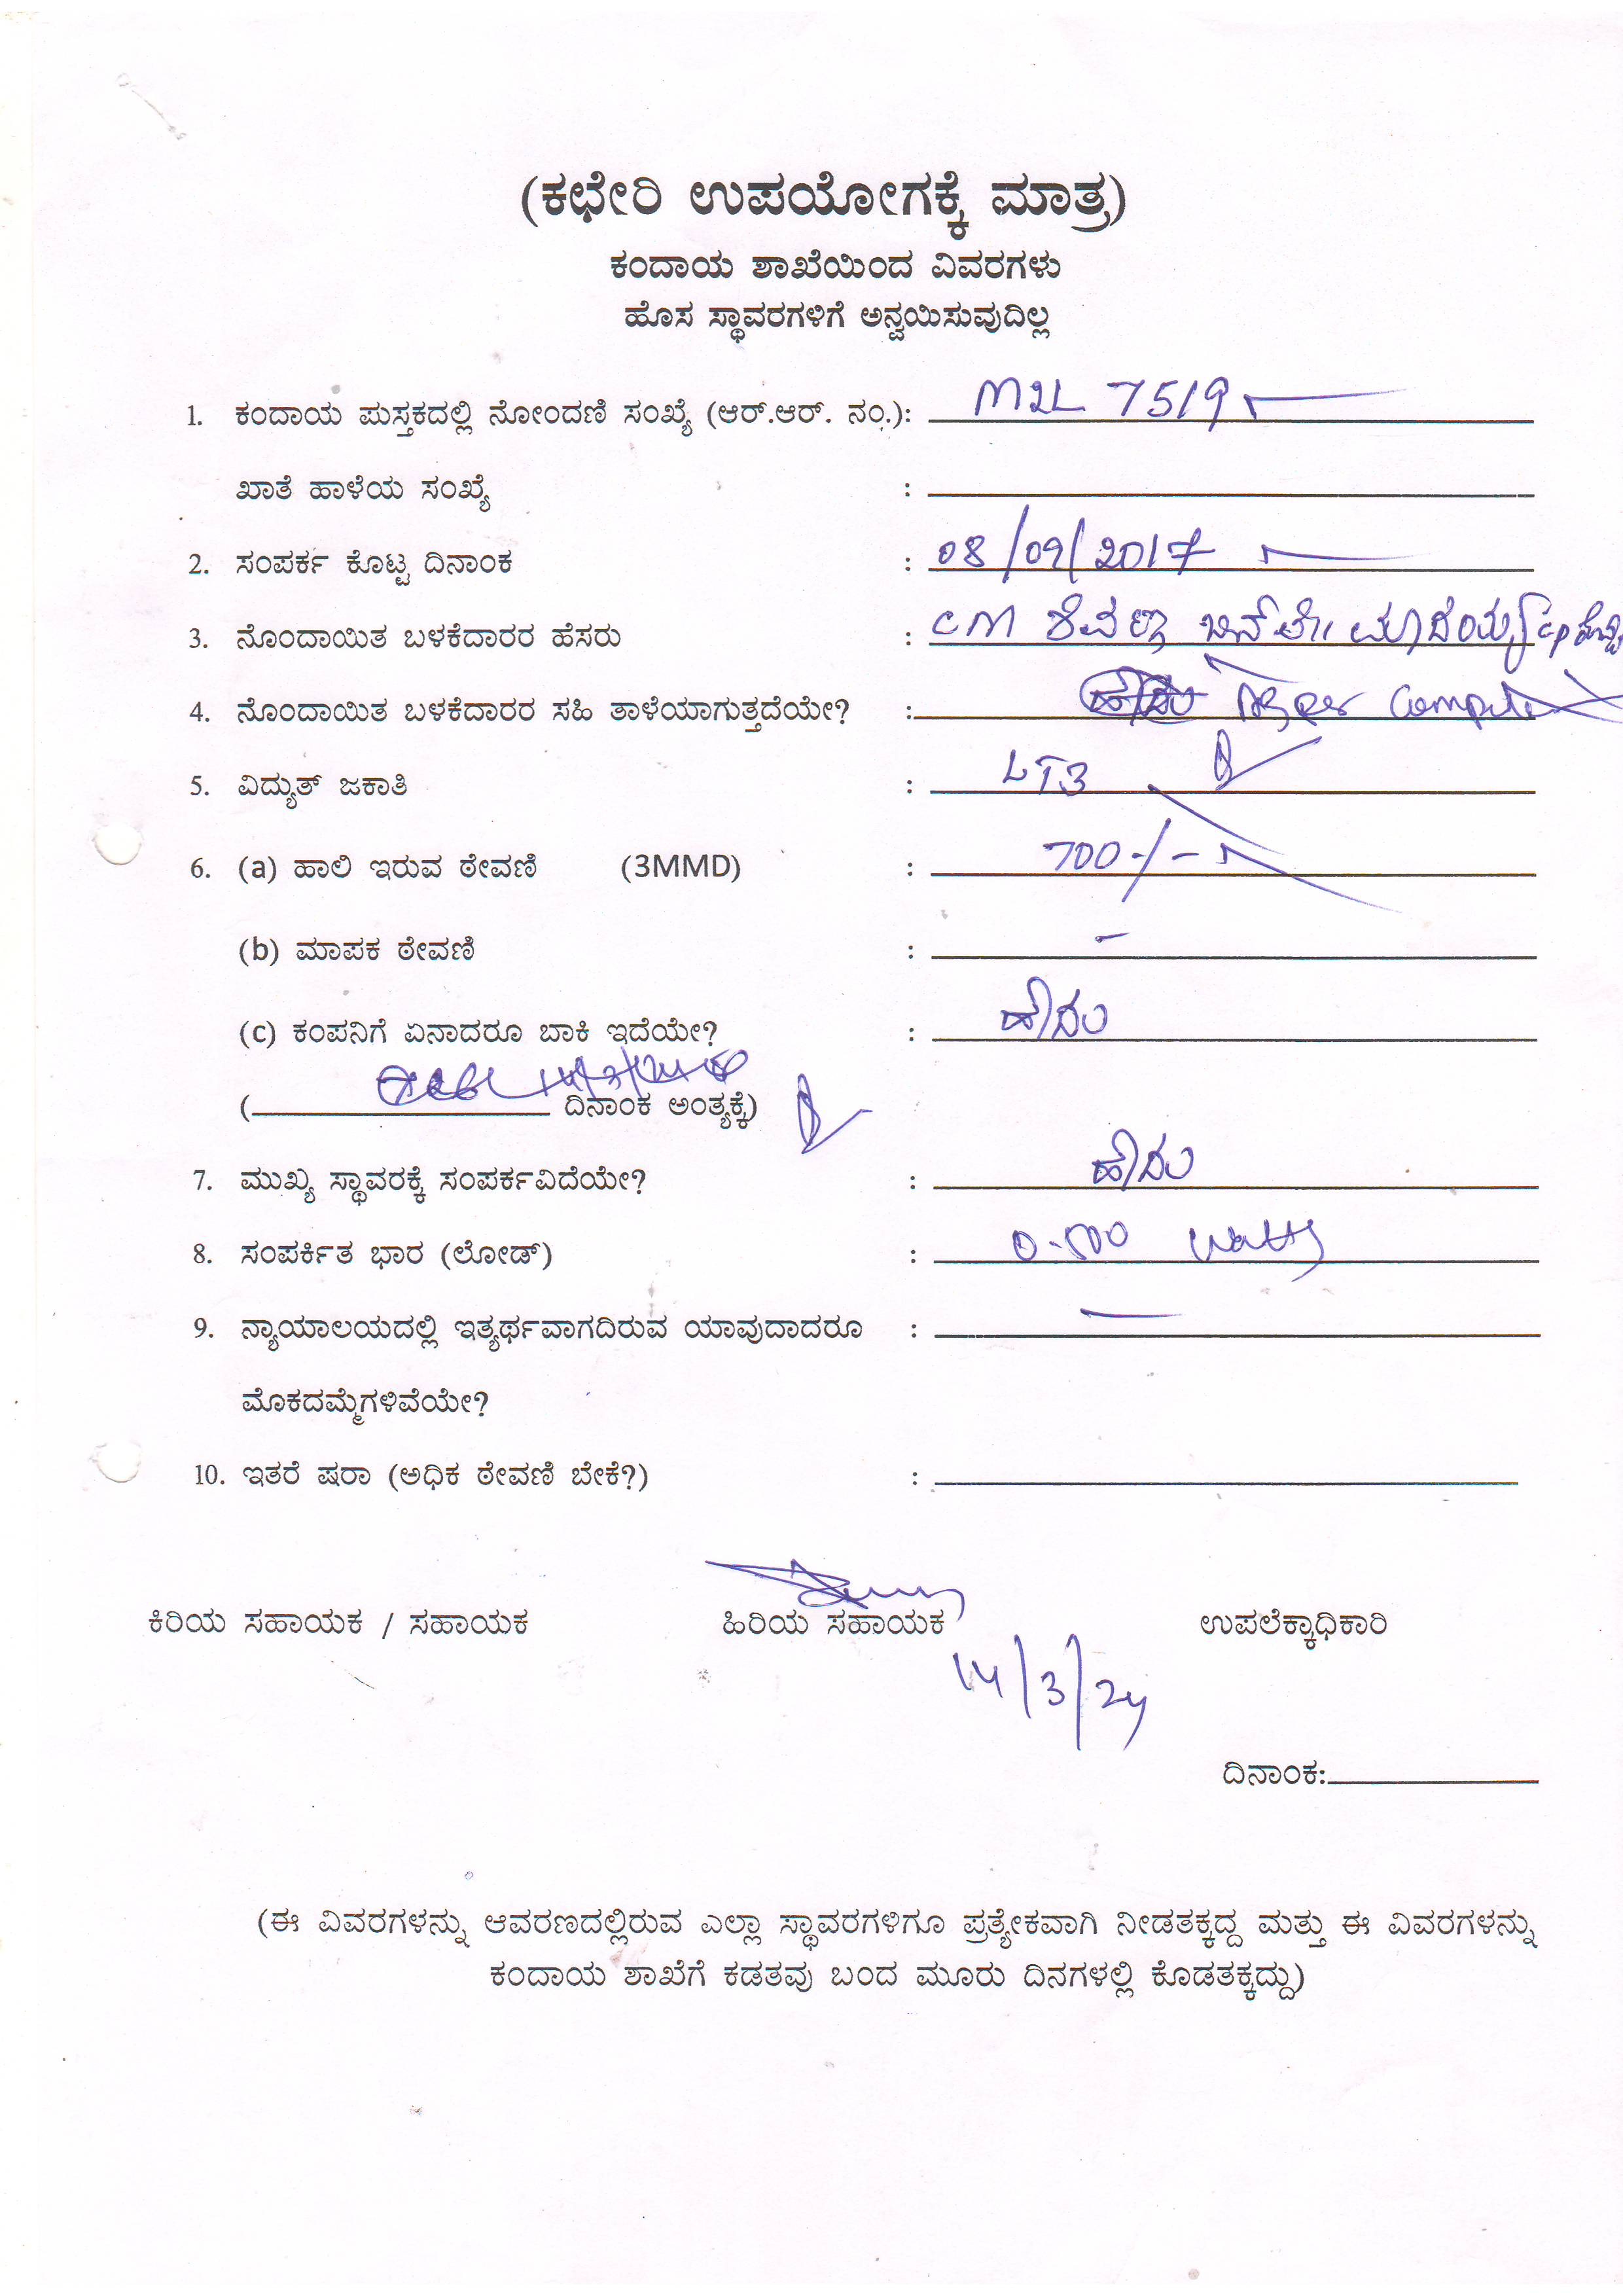 (ಕಛೇರಿ ಉಪಯೋಗಕ್ಕೆ ಮಾತ್ರ)
ಕಂದಾಯ ಶಾಖೆಯಿಂದ ವಿವರಗಳು
ಹೊಸ ಸ್ಥಾವರಗಳಿಗೆ ಅನ್ವಯಿಸುವುದಿಲ್ಲ
1. ಕಂದಾಯ ಪುಸ್ತಕದಲ್ಲಿ ನೋಂದಣಿ ಸಂಖ್ಯೆ (ಆರ್.ಆರ್. ನಂ.): M2L 7519
ಖಾತೆ ಹಾಳೆಯ ಸಂಖ್ಯೆ :
2. ಸಂಪರ್ಕ ಕೊಟ್ಟ ದಿನಾಂಕ : 08/09/2017
3. ನೊಂದಾಯಿತ ಬಳಕೆದಾರರ ಹೆಸರು : CM ಶಿವಣ್ಣ ಬಿನ್ ಲೇ॥ ಮಾದಯ್ಯ
4. ನೊಂದಾಯಿತ ಬಳಕೆದಾರರ ಸಹಿ ತಾಳೆಯಾಗುತ್ತದೆಯೇ? : As per
5. ವಿದ್ಯುತ್ ಜಕಾತಿ : LT3
6. (a) ಹಾಲಿ ಇರುವ ಠೇವಣಿ (3MMD) : 700-/-
(b) ಮಾಪಕ ಠೇವಣಿ : -
(c) ಕಂಪನಿಗೆ ಏನಾದರೂ ಬಾಕಿ ಇದೆಯೇ? : ಹೌದು
( ದಿನಾಂಕ ಅಂತ್ಯಕ್ಕೆ)
7. ಮುಖ್ಯ ಸ್ಥಾವರಕ್ಕೆ ಸಂಪರ್ಕವಿದೆಯೇ? : ಹೌದು
8. ಸಂಪರ್ಕಿತ ಭಾರ (ಲೋಡ್) : 0.500 Watts
9. ನ್ಯಾಯಾಲಯದಲ್ಲಿ ಇತ್ಯರ್ಥವಾಗದಿರುವ ಯಾವುದಾದರೂ : —
ಮೊಕದಮ್ಮೆಗಳಿವೆಯೇ?
10. ಇತರೆ ಷರಾ (ಅಧಿಕ ಠೇವಣಿ ಬೇಕೆ?) :
ಕಿರಿಯ ಸಹಾಯಕ / ಸಹಾಯಕ ಹಿರಿಯ ಸಹಾಯಕ ಉಪಲೆಕ್ಕಾಧಿಕಾರಿ
14/3/24
ದಿನಾಂಕ:
(ಈ ವಿವರಗಳನ್ನು ಆವರಣದಲ್ಲಿರುವ ಎಲ್ಲಾ ಸ್ಥಾವರಗಳಿಗೂ ಪ್ರತ್ಯೇಕವಾಗಿ ನೀಡತಕ್ಕದ್ದ ಮತ್ತು ಈ ವಿವರಗಳನ್ನು
ಕಂದಾಯ ಶಾಖೆಗೆ ಕಡತವು ಬಂದ ಮೂರು ದಿನಗಳಲ್ಲಿ ಕೊಡತಕ್ಕದ್ದು)